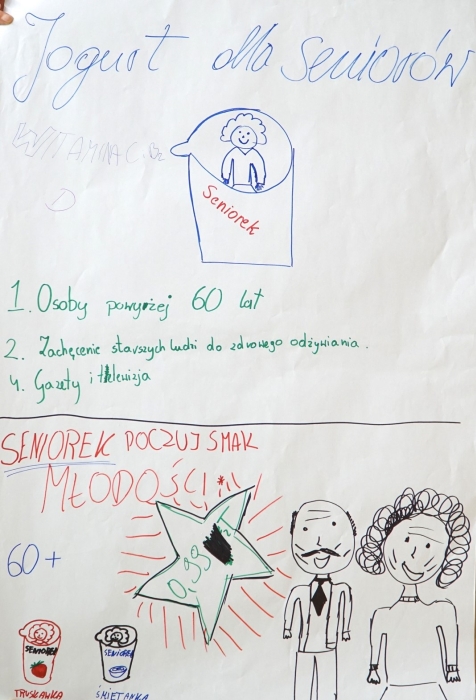 Jogurt dla seniorów
WITAMINA C, B12
D
Seniorek
1. Osoby powyrzej 60 lat
2. Zachęcenie starszych ludzi do zdrowego odżywiania.
4. Gazety i telewizja
SENIOREK POCZUJ SMAK
MŁODOŚCI!
0,99 zł
60+
SENIOREK
SENIOREK
TRUSKAWKA
ŚMIETANKA